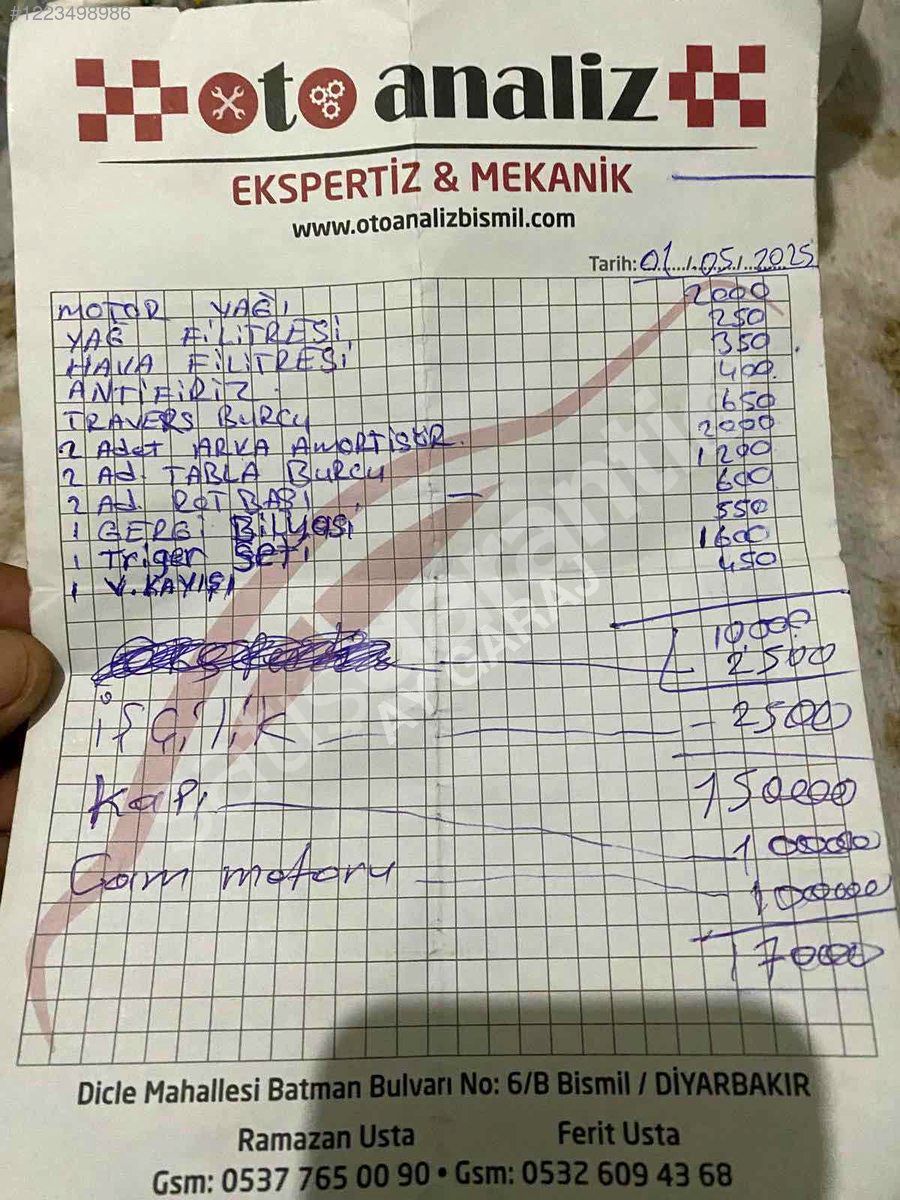 #1223498986
oto analiz
EKSPERTİZ & MEKANİK
www.otoanalizbismil.com
Tarih: 01/05/2025
MOTOR YAĞI 2000
YAĞ FİLİTRESİ 250
HAVA FİLİTRESİ 350
ANTİFİRİZ 400
TRAVERS BURCU 650
2 Adet ARKA AMORTİSÖR 2000
2 Ad. TABLA BURCU 1200
2 Ad. ROT BAŞI 600
1 GERGİ BİLYASI 550
1 Triger SETİ 1600
1 V.KAYIŞI 450
10000
2500
İŞÇİLİK - 2500
150000
Kapı 100000
Cam motoru 100000
17000
AY GARAJ
Dicle Mahallesi Batman Bulvarı No: 6/B Bismil / DİYARBAKIR
Ramazan Usta Ferit Usta
Gsm: 0537 765 00 90 • Gsm: 0532 609 43 68